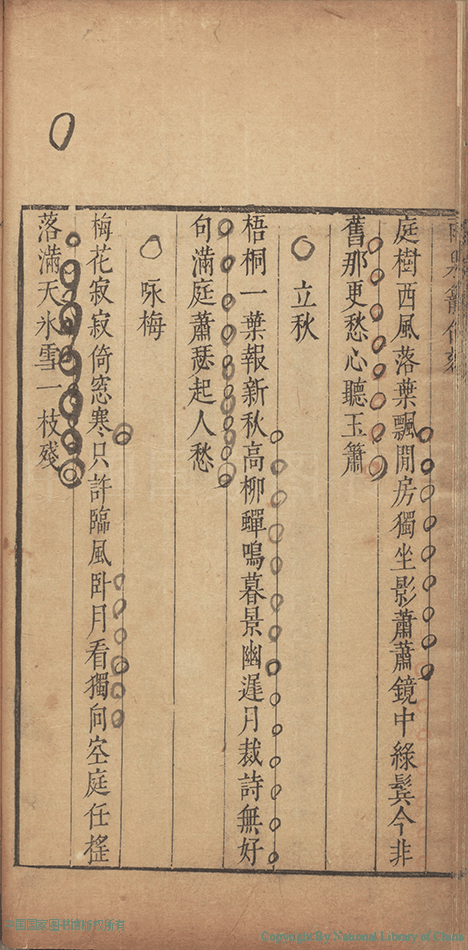 庭樹西風落葉飄閒房獨坐影蕭蕭鏡中綠鬂今非
舊那更愁心聽玉簫
立秋
梧桐一葉報新秋高柳蟬鳴暮景幽遲月裁詩無好
句滿庭蕭瑟起人愁
咏梅
梅花寂寂倚窓寒只許臨風卧月看獨向空庭任搖
落滿天氷雪一枝殘
中国国家图书馆版权所有
Copyright By National Library of China